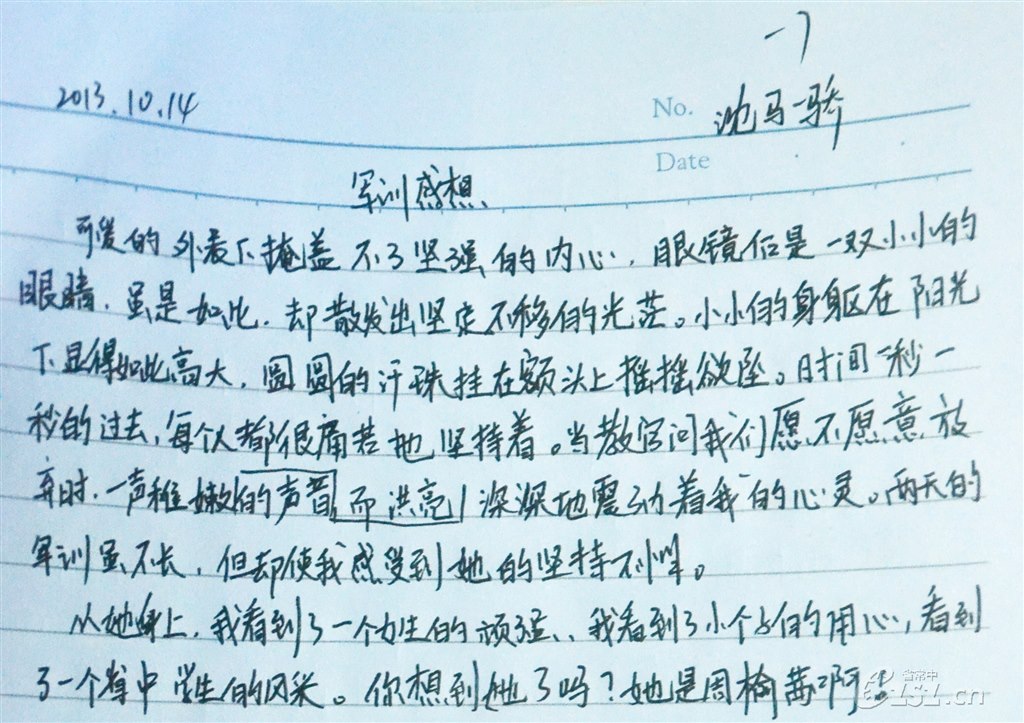 一7
2013.10.14
No. 沈马一骄
Date
军训感想
可爱的外表下掩盖不了坚强的内心，眼镜后是一双小小的
眼睛，虽是如此，却散发出坚定不移的光茫。小小的身躯在阳光
下显得如此高大，圆圆的汗珠挂在额头上摇摇欲坠。时间一秒一
秒的过去，每个人都很痛苦地坚持着。当教官问我们愿不愿意放
弃时，一声稚嫩的声音而洪亮深深地震动着我的心灵。两天的
军训虽不长，但却使我感受到她的坚持不懈。
从她身上，我看到了一个女生的顽强、我看到了小个子的用心，看到
了一个省中学生的风采。你想到她了吗？她是周榆茜啊
省常中
.cn